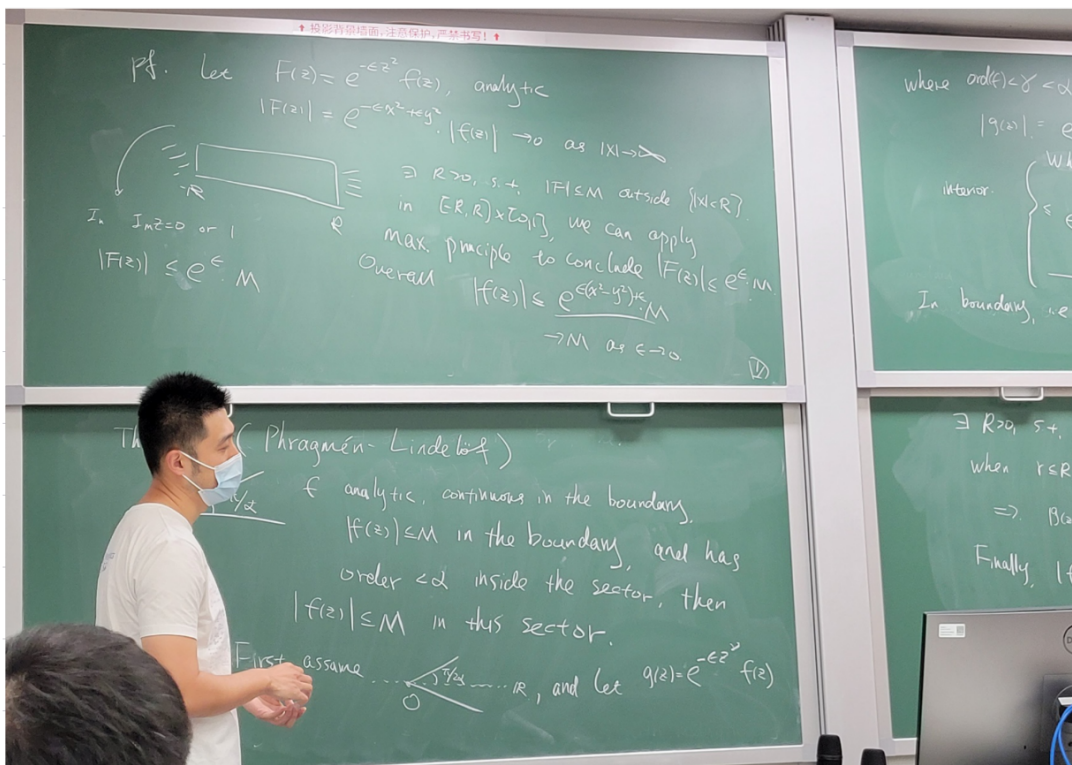 ↑ 投影背景墙面,注意保护,严禁书写! ↑
Pf. Let F(z) = e^{-εz²} f(z), analytic
|F(z)| = e^{-εx²+εy²}·|f(z)| →0 as |x|→∞
-R
R
In Imz=0 or 1
|F(z)| ≤ e^ε·M
∃ R>0, s.t. |F|≤M outside {|x|<R}.
in [-R,R]×[0,1], we can apply
max. principle to conclude |F(z)| ≤ e^ε·M
Overall |f(z)| ≤ e^{ε(x²-y²)+ε}·M
→M as ε→0.
(Phragmén-Lindelöf)
π/α
f analytic, continuous in the boundary,
|f(z)|≤M in the boundary, and has
order <α inside the sector, then
|f(z)|≤M in this sector.
First assume π/2α O ℝ, and let g(z)=e^{-εz^γ} f(z)
where ord(f)<γ<α
|g(z)| = e
interior. ≤ e
In boundary, i.e
∃ R>0, s.t.
when r≤R
=>
Finally, |f